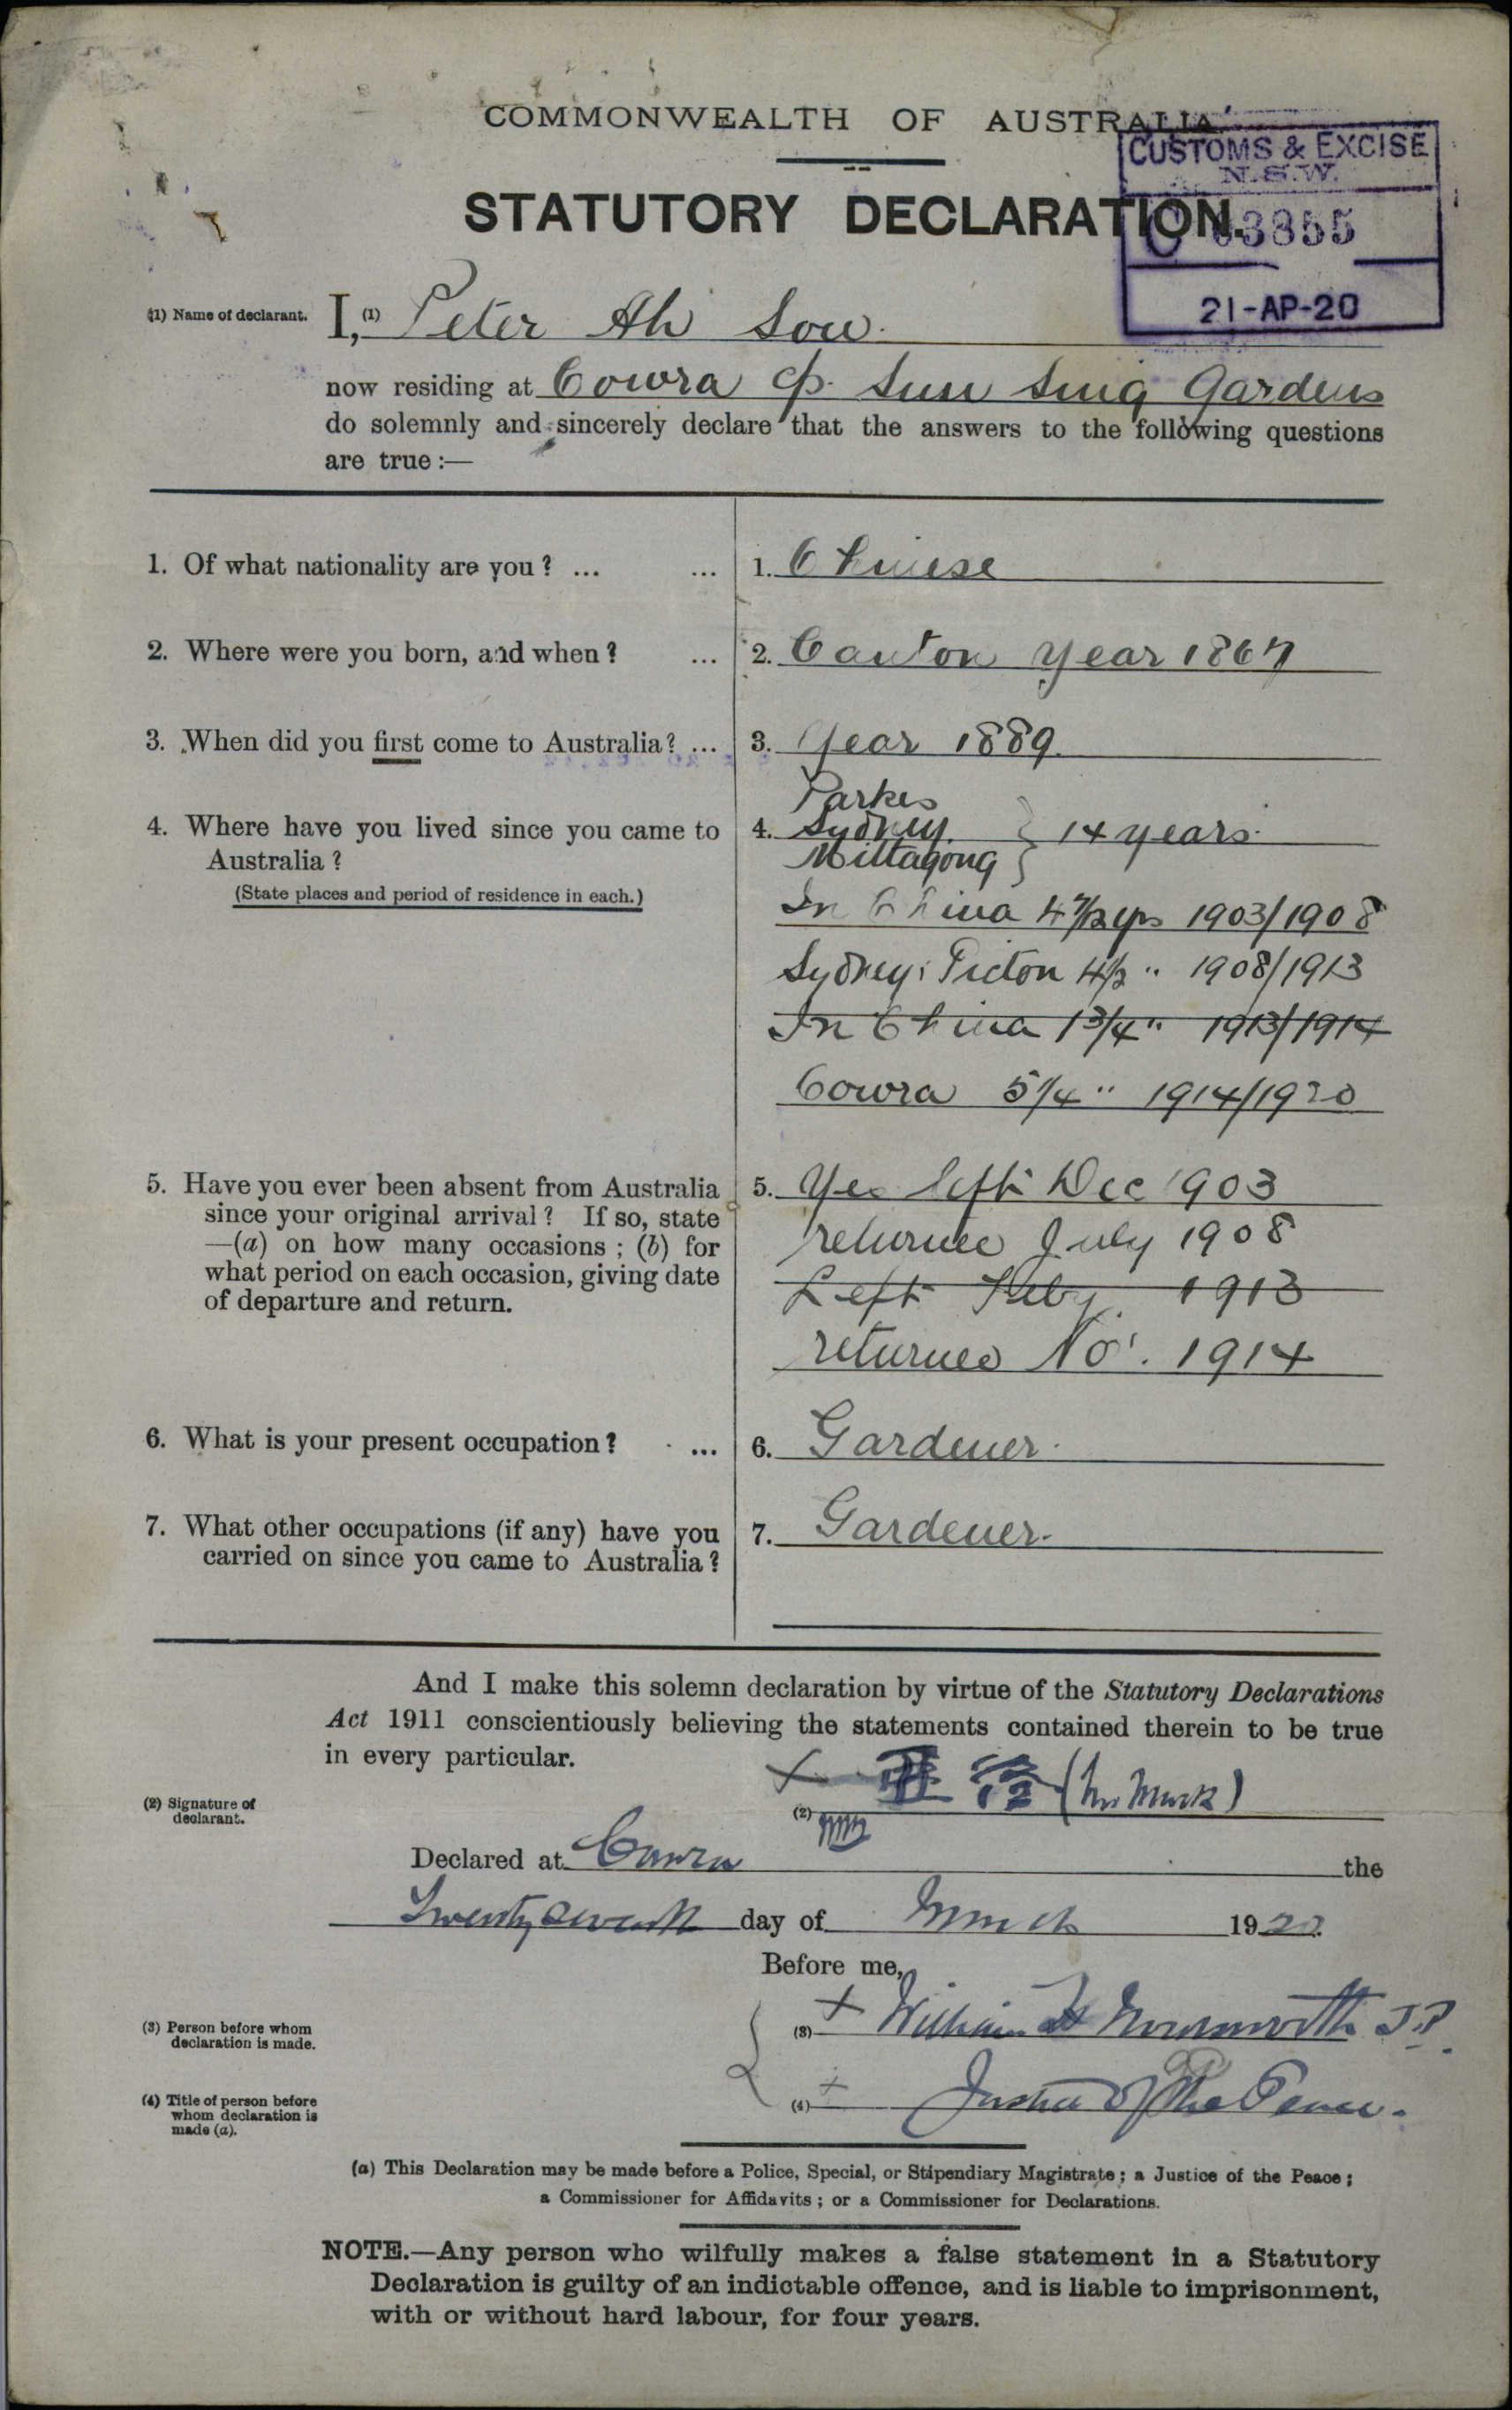 COMMONWEALTH OF AUSTRALIA.
CUSTOMS & EXCISE
N.S.W.
STATUTORY DECLARATION.
C 03355
21-AP-20
(1) Name of declarant. I, (1) Peter Ah Sow.
now residing at Cowra c/o Sun Sing Gardens
do solemnly and sincerely declare that the answers to the following questions
are true :—
1. Of what nationality are you ? ... ... 1. Chinese
2. Where were you born, and when ? ... 2. Canton year 1867
3. When did you first come to Australia ? ... 3. Year 1889
Parkes
4. Where have you lived since you came to 4. Sydney } 14 years.
Australia ? Mittagong
(State places and period of residence in each.)
In China 4 7/12 yrs 1903/1908
Sydney: Picton 4 1/2 " 1908/1913
In China 1 3/4 " 1913/1914
Cowra 5 1/4 " 1914/1920
5. Have you ever been absent from Australia 5. Yes left Dec 1903
since your original arrival ? If so, state
—(a) on how many occasions ; (b) for returned July 1908
what period on each occasion, giving date Left Feby. 1913
of departure and return.
returned Nov. 1914
6. What is your present occupation ? ... 6. Gardener.
7. What other occupations (if any) have you 7. Gardener.
carried on since you came to Australia ?
And I make this solemn declaration by virtue of the Statutory Declarations
Act 1911 conscientiously believing the statements contained therein to be true
in every particular.
(2) Signature of
declarant.
(2) 亜 (his Mark)
Declared at Cowra the
Twenty seventh day of March 1920.
Before me,
(3) Person before whom
declaration is made.
(3) William J.P.
(4) Title of person before
whom declaration is
made (a).
(4) Justice of the Peace.
(a) This Declaration may be made before a Police, Special, or Stipendiary Magistrate ; a Justice of the Peace ;
a Commissioner for Affidavits ; or a Commissioner for Declarations.
NOTE.—Any person who wilfully makes a false statement in a Statutory
Declaration is guilty of an indictable offence, and is liable to imprisonment,
with or without hard labour, for four years.